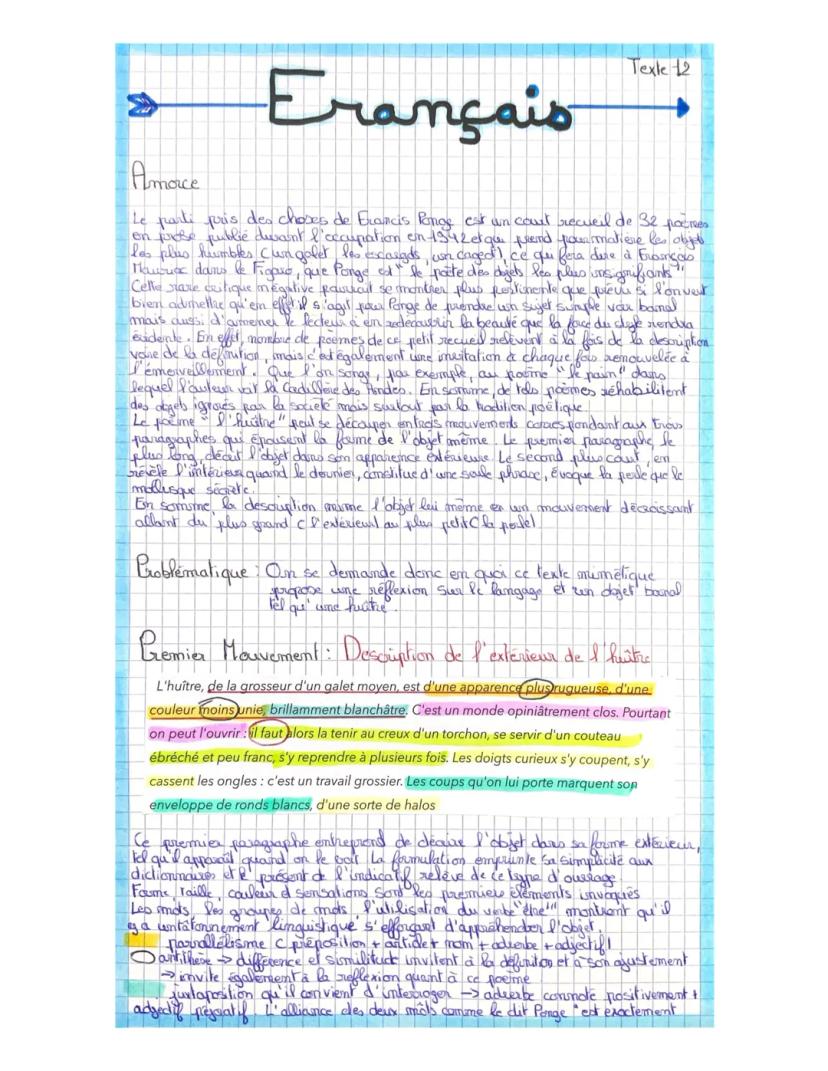 Texte 12
Français
Amorce
Le parti pris des choses de Francis Ponge est un court recueil de 32 poèmes
en prose publié durant l'occupation en 1942 et qui prend pour matière les objets
les plus humbles (un galet, les escargots, un cageot), ce qui fera dire à François
Mauriac dans le Figaro, que Ponge est "le poète des objets les plus insignifiants".
Cette rare critique négative pourrait se montrer plus pertinente que prévu si l'on veut
bien admettre qu'en effet il s'agit pour Ponge de prendre un sujet simple voir banal
mais aussi d'amener le lecteur à en redécouvrir la beauté que la force du style rendra
évidente. En effet, nombre de poèmes de ce petit recueil relèvent à la fois de la description
voire de la définition, mais c'est également une invitation à chaque fois renouvelée à
l'émerveillement. Que l'on songe, par exemple, au poème "le pain" dans
lequel l'auteur voit la Cordillère des Andes. En somme, de tels poèmes réhabilitent
des objets ignorés par la société mais surtout par la tradition poétique.
Le poème "l'huître" peut se découper en trois mouvements correspondant aux trois
paragraphes qui épousent la forme de l'objet même. Le premier paragraphe, le
plus long, décrit l'objet dans son apparence extérieure. Le second plus court, en
révèle l'intérieur quand le dernier, constitué d'une seule phrase, évoque la perle que le
mollusque sécrète.
En somme, la description mime l'objet lui même en un mouvement décroissant
allant du plus grand (l'extérieur) au plus petit (la perle).
Problématique : On se demande donc en quoi ce texte mimétique
propose une réflexion sur le langage et un objet banal
tel qu'une huître.
Premier Mouvement : Description de l'extérieur de l'huître
L'huître, de la grosseur d'un galet moyen, est d'une apparence plus rugueuse, d'une
couleur moins unie, brillamment blanchâtre. C'est un monde opiniâtrement clos. Pourtant
on peut l'ouvrir : il faut alors la tenir au creux d'un torchon, se servir d'un couteau
ébréché et peu franc, s'y reprendre à plusieurs fois. Les doigts curieux s'y coupent, s'y
cassent les ongles : c'est un travail grossier. Les coups qu'on lui porte marquent son
enveloppe de ronds blancs, d'une sorte de halos
Ce premier paragraphe entreprend de décrire l'objet dans sa forme extérieur,
tel qu'il apparaît quand on le voit. La formulation emprunte sa simplicité aux
dictionnaires et le présent de l'indicatif relève de ce type d'ouvrage.
Forme, taille, couleur et sensations sont les premiers éléments invoqués
Les mots, les groupes de mots, l'utilisation du verbe "être" montrent qu'il
y a un tâtonnement linguistique s'efforçant d'appréhender l'objet.
parallélisme (préposition + article + nom + adverbe + adjectif)
antithèse → différence et similitude invitent à la définition et à son ajustement
→ invite également à la réflexion quant à ce poème
juxtaposition qu'il convient d'interroger → adverbe connoté positivement +
adjectif péjoratif. L'alliance des deux mots comme le dit Ponge "est exactement